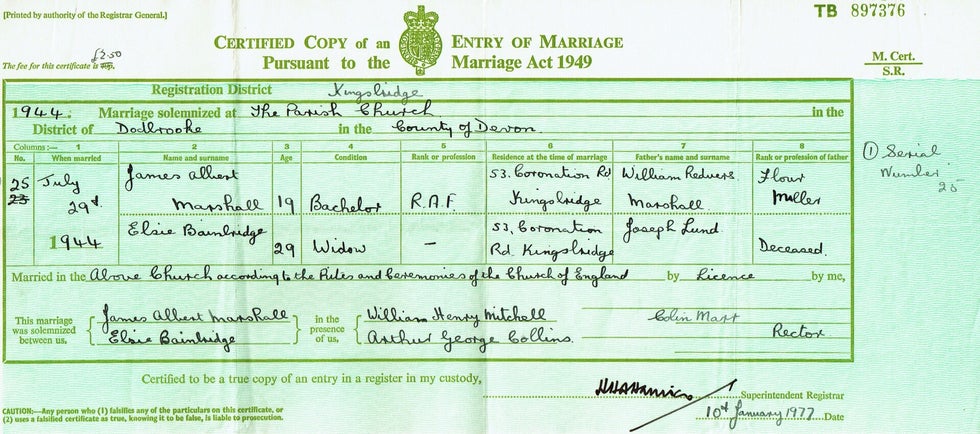 [Printed by authority of the Registrar General.]
TB 897376
CERTIFIED COPY OF AN ENTRY OF MARRIAGE
Pursuant to the Marriage Act 1949
£2.50
The fee for this certificate is
M. Cert.
S.R.
Registration District Kingsbridge
1944. Marriage solemnized at The Parish Church in the
District of Dodbrooke in the County of Devon.
Columns :— 1 2 3 4 5 6 7 8
No. When married Name and surname Age Condition Rank or profession Residence at the time of marriage Father's name and surname Rank or profession of father
25 July James Albert 53. Coronation Rd William Redvers Flour
23 29th Marshall 19 Bachelor R.A.F. Kingsbridge Marshall Miller
1944 Elsie Bainbridge 53, Coronation Joseph Lund
29 Widow — Rd Kingsbridge Deceased.
① Serial
Number
25
Married in the Above Church according to the Rites and Ceremonies of the Church of England by Licence by me,
This marriage was solemnized between us,
James Albert Marshall
Elsie Bainbridge
in the presence of us,
William Henry Mitchell
Arthur George Collins.
Colin Marr
Rector
Certified to be a true copy of an entry in a register in my custody,
Superintendent Registrar
10th January 1977 Date
CAUTION:—Any person who (1) falsifies any of the particulars on this certificate, or
(2) uses a falsified certificate as true, knowing it to be false, is liable to prosecution.